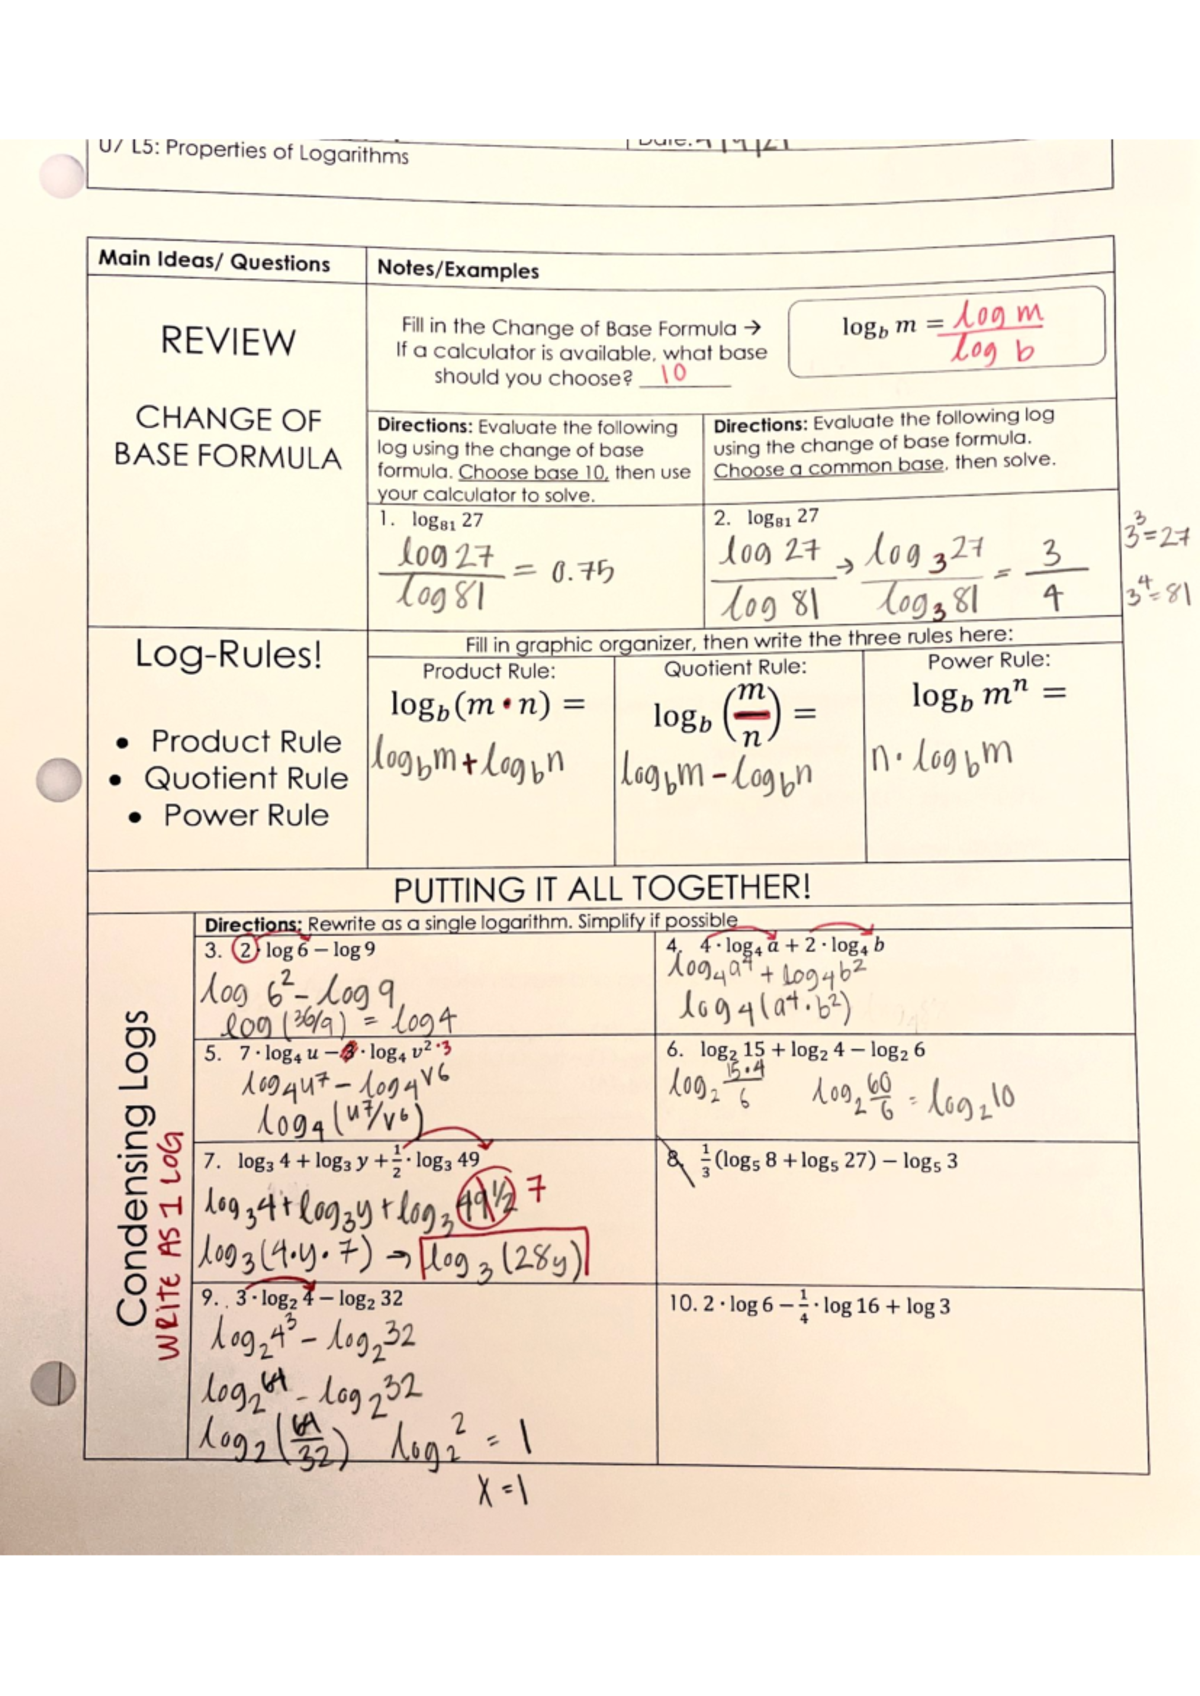 U7 L5: Properties of Logarithms
Date: 4/9/21
Main Ideas/ Questions
Notes/Examples
REVIEW
CHANGE OF
BASE FORMULA
Fill in the Change of Base Formula →
If a calculator is available, what base
should you choose? 10
log_b m = log m / log b
Directions: Evaluate the following
log using the change of base
formula. Choose base 10, then use
your calculator to solve.
Directions: Evaluate the following log
using the change of base formula.
Choose a common base, then solve.
1. log₈₁ 27
log 27 / log 81 = 0.75
2. log₈₁ 27
log 27 / log 81 → log₃ 27 / log₃ 81 = 3/4
3³=27
3⁴=81
Log-Rules!
• Product Rule
• Quotient Rule
• Power Rule
Fill in graphic organizer, then write the three rules here:
Product Rule:
log_b(m · n) =
log_b m + log_b n
Quotient Rule:
log_b (m/n) =
log_b m - log_b n
Power Rule:
log_b mⁿ =
n · log_b m
PUTTING IT ALL TOGETHER!
Condensing Logs
WRITE AS 1 LOG
Directions: Rewrite as a single logarithm. Simplify if possible
3. 2 · log 6 − log 9
log 6² - log 9
log (36/9) = log 4
4. 4 · log₄ a + 2 · log₄ b
log₄a⁴ + log₄b²
log₄(a⁴·b²)
5. 7 · log₄ u − 3 · log₄ v² ·3
log₄u⁷ - log₄v6
log₄(u⁷/v⁶)
6. log₂ 15 + log₂ 4 − log₂ 6
log₂ 15·4/6 log₂ 60/6 = log₂10
7. log₃ 4 + log₃ y + 1/2 · log₃ 49
log₃4 + log₃y + log₃ 49½ 7
log₃(4·y·7) → log₃(28y)
8. 1/3 (log₅ 8 + log₅ 27) − log₅ 3
9. 3 · log₂ 4 − log₂ 32
log₂4³ - log₂32
log₂64 - log₂32
log₂(64/32) log₂2 = 1
x = 1
10. 2 · log 6 − 1/4 · log 16 + log 3